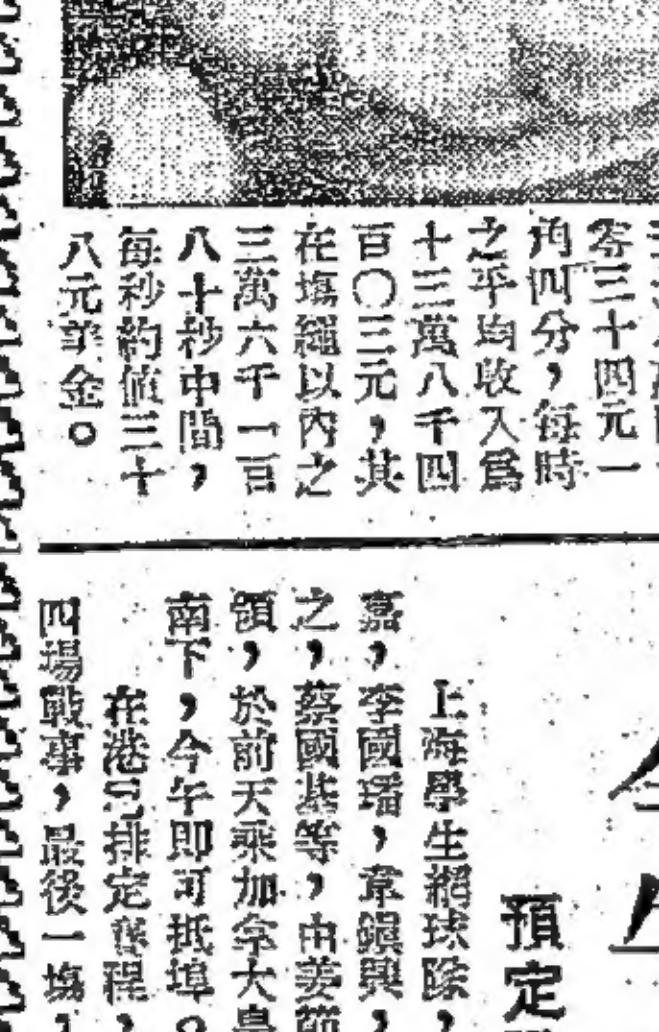 零三十四元一
角四分，每時
之平均收入爲
十三萬八千四
百〇三元，其
在塲繩以內之
三萬六千一百
八十秒中間，
每秒約値三十
八元美金。
預定
上海學生網球隊，
嘉，李國璠，韋鎭興，
之，蔡國基等，由姜節
領，於前天乘加拿大皇
南下，今午即可抵埠。
在港已排定賽程，
四場戰事，最後一塲，